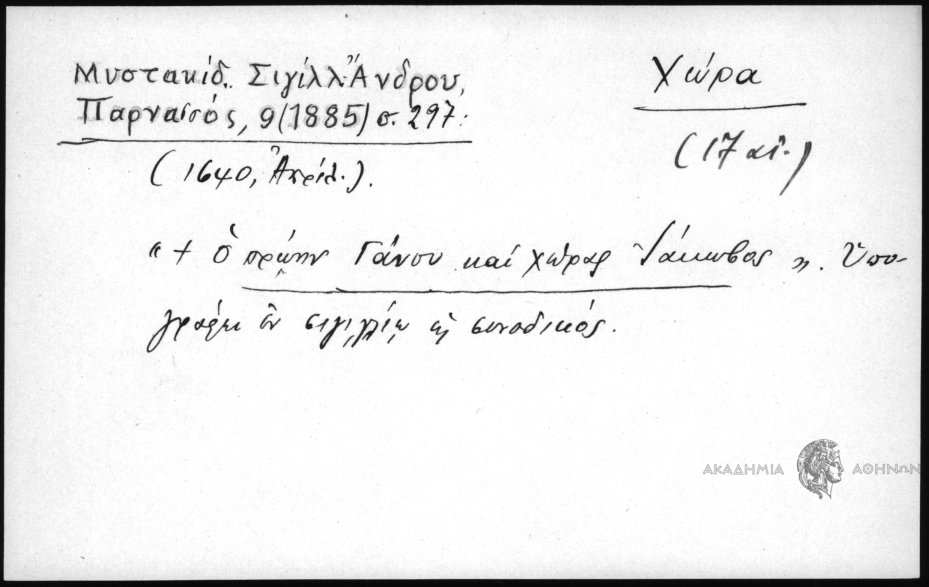 Μυστακίδ. Σιγίλλ. Ἄνδρου,
Παρνασσός, 9(1885) σ. 297:
Χώρα
(17 αἰ.)
(1640, Ἀπρίλ.).
"+ ὁ πρώην Γάνου καὶ χώρας Ἰάκωβος". Ὑπο-
γράφει ἐν σιγιλλίῳ ὡς συνοδικός.
ΑΚΑΔΗΜΙΑ ΑΘΗΝΩΝ